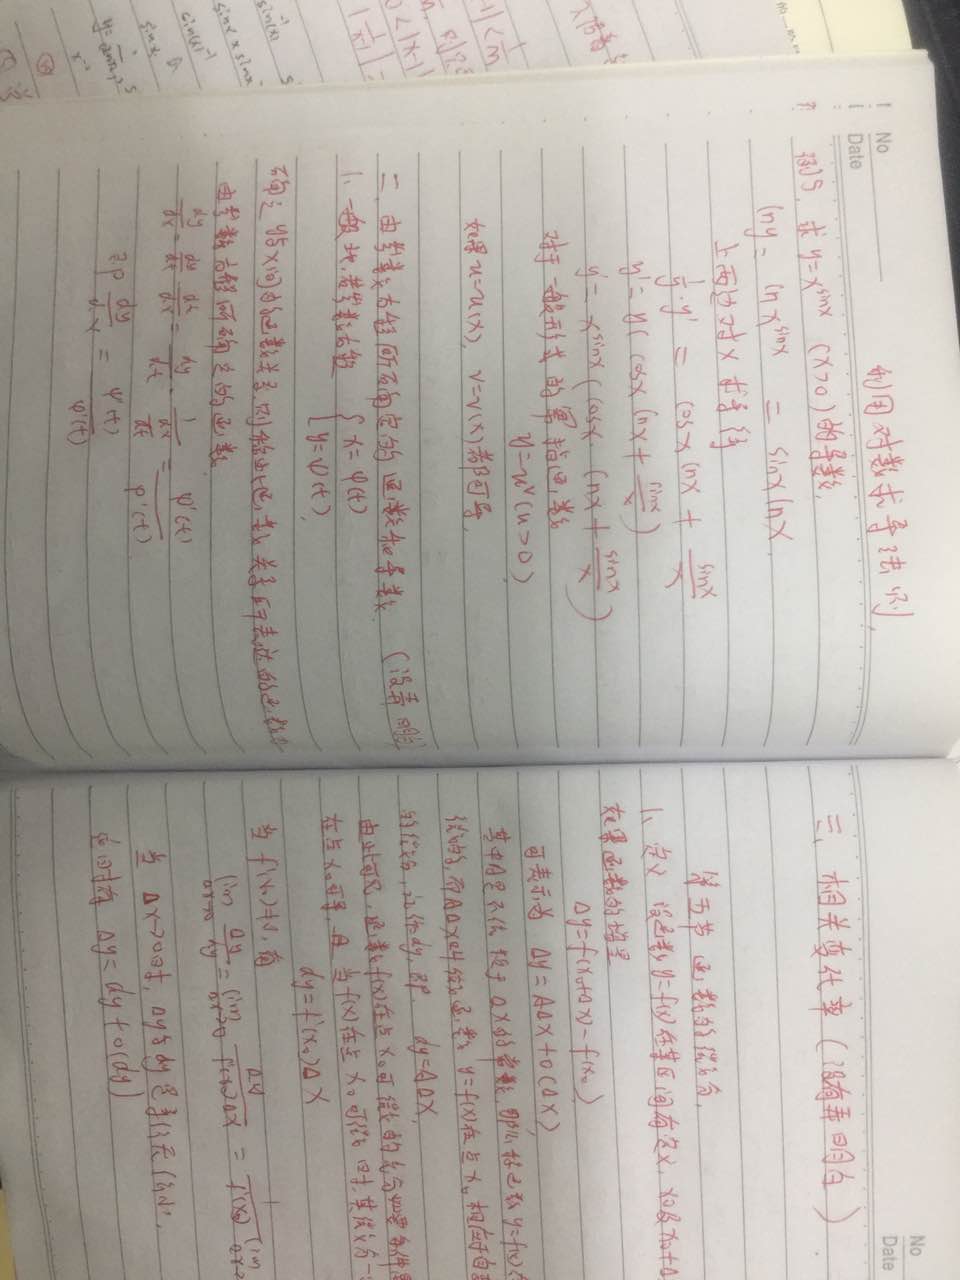 No
Date
利用对数求导法则
例5、求y=x^sinx (x>0)的导数
lny = lnx^sinx = sinxlnx
上两边对x求导得
1/y·y' = cosxlnx + sinx/x
y' = y(cosxlnx + sinx/x)
y' = x^sinx (cosx lnx + sinx/x)
对于一般形式的幂指函数
y=u^v (u>0)
如果u=u(x), v=v(x)都可导
二、由参数方程所确定的函数的导数 (没弄明白)
1、一般地,若参数方程
{ x=φ(t)
y=ψ(t),
确定y与x间的函数关系,则称此函数关系所表达的函数为
由参数方程所确定的函数
dy/dx = dy/dt dt/dx = dy/dt · 1/(dx/dt) = ψ'(t)/φ'(t)
即 dy/dx = ψ'(t)/φ'(t)
No
Date
三、相关变化率 (没有弄明白)
第五节 函数的微分
1、定义 设函数y=f(x)在某区间有定义, x0及x0+Δ
如果函数的增量
Δy=f(x0+Δx)-f(x0)
可表示为 Δy=AΔx+o(Δx)
其中A是不依赖于Δx的常数,那么称函数y=f(x)在
微的,而AΔx叫做函数y=f(x)在点x0相应于自变
的微分,记作dy,即 dy=AΔx
由此可见,函数f(x)在点x0可微的充分必要条件是
在点x0可导,且当f(x)在点x0可微时,其微分一
dy=f'(x0)Δx
当f'(x0)≠0,有
lim Δx→0 Δy/dy = lim Δx→0 Δy/f'(x0)Δx = 1/f'(x0) lim Δx→
当Δx→0时,Δy与dy是等价无穷小,
这时有 Δy=dy+o(dy)